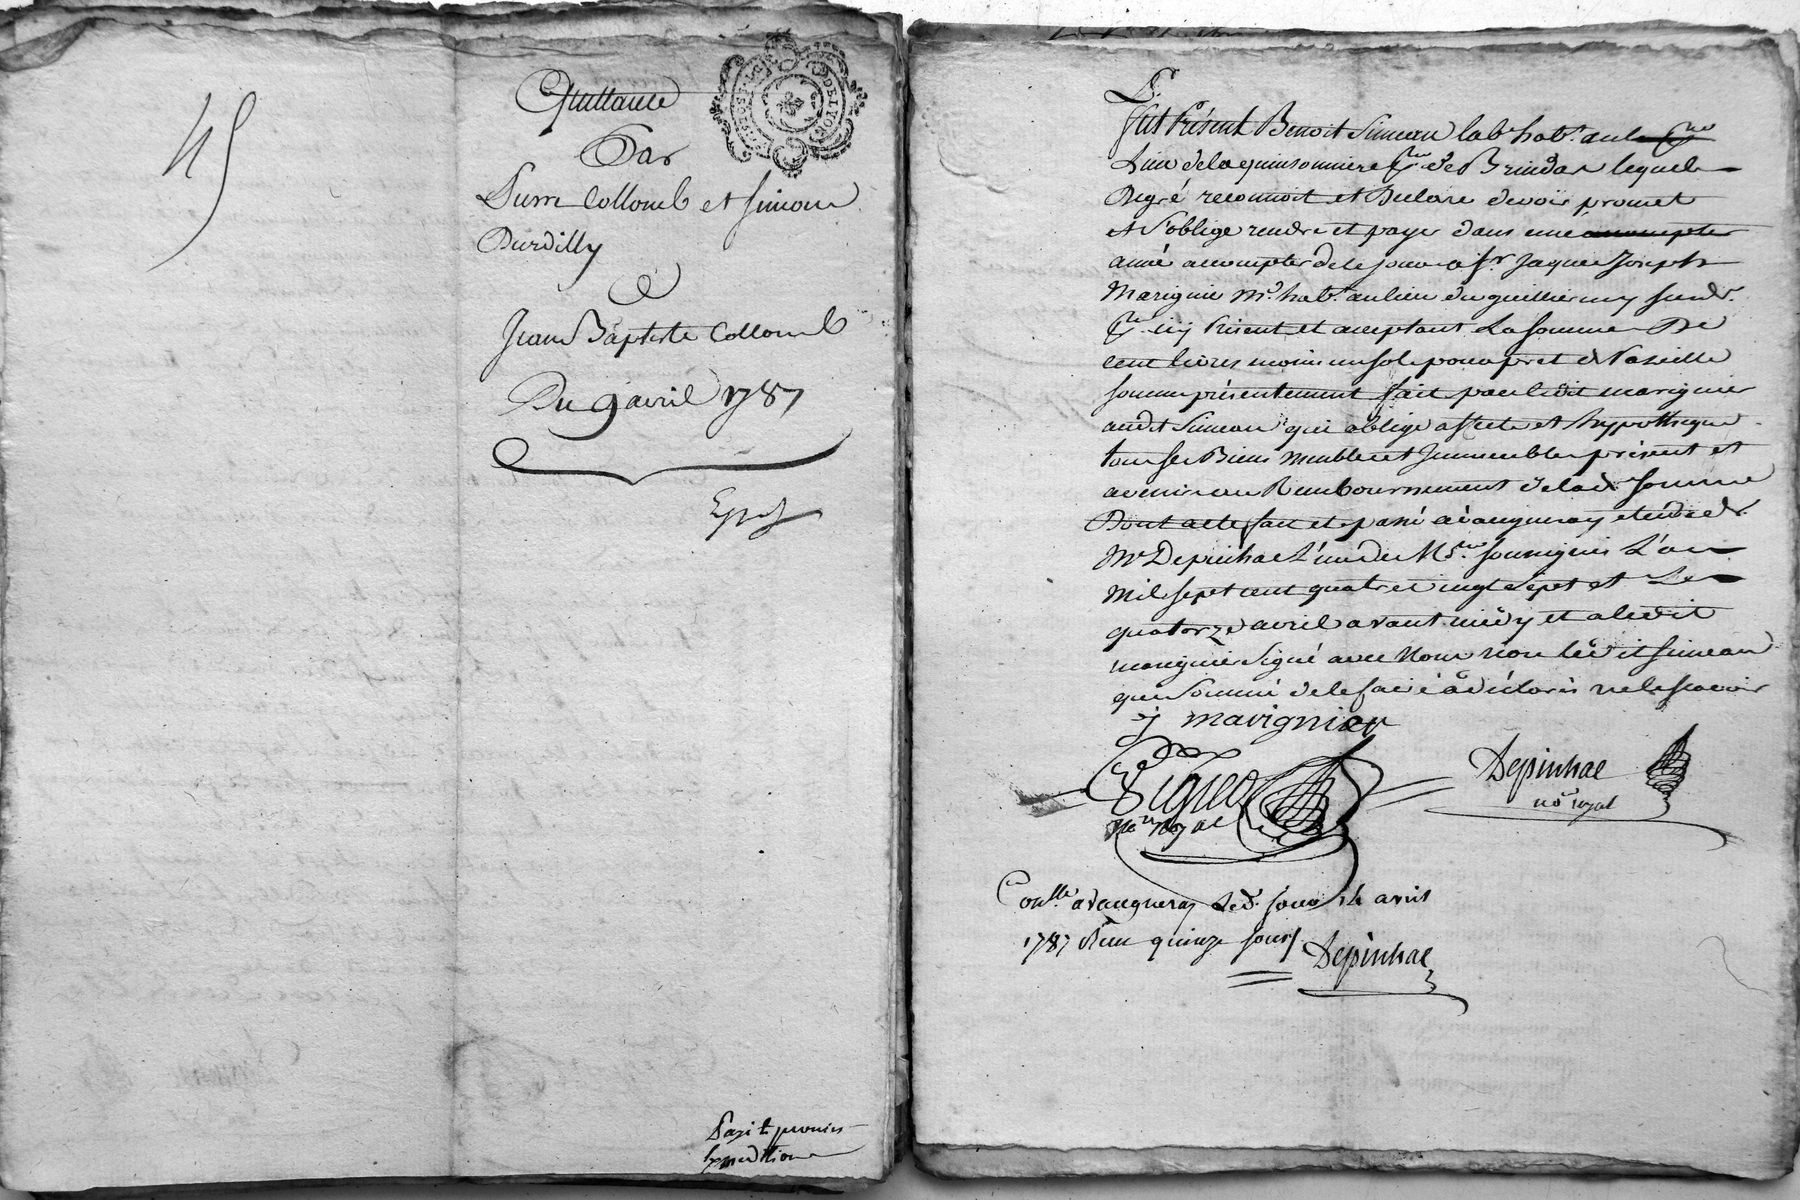 45
Quittance
Par
Pierre Collomb et Simon
Durdilly
à
Jean Baptiste Collomb
Du 9 avril 1787
Expé
Payé le premier
Expedition
DELYON
Fut Présent Benoit Simean labr habt. au
Lieu de la quinsonniere de Brindas lequel
De gré reconnoit et Declare devoir promet
et s'oblige rendre et payer dans une
anné a compter de ce jour a sr Jaque Joseph
Marignier md. habt. au lieu du guilliermy susd.
icy Présent et acceptant La somme De
cent livres moins un sol pour pret de Pareille
somme présentement fait par ledit marignier
audit Simean qui oblige affecte et hypotheque
tous ses Biens meubles et Immeubles présent et
avenir au Remboursement de lad somme
Dont acte fait et passé a vaugneray etude de
Me Depinhac L'un des Nres soussignés L'an
Mil sept cent quatre vingt sept et Le
quatorze avril avant midy et a ledit
marignier Signé avec Nous non ledit simean
que sommé de le faire a déclaré ne le scavoir
j marignier
Depinhac
no royal
Nore Royal
Conllé a vaugneray Led. jour 14 avril
1787 Reçu quinze sous
Depinhac